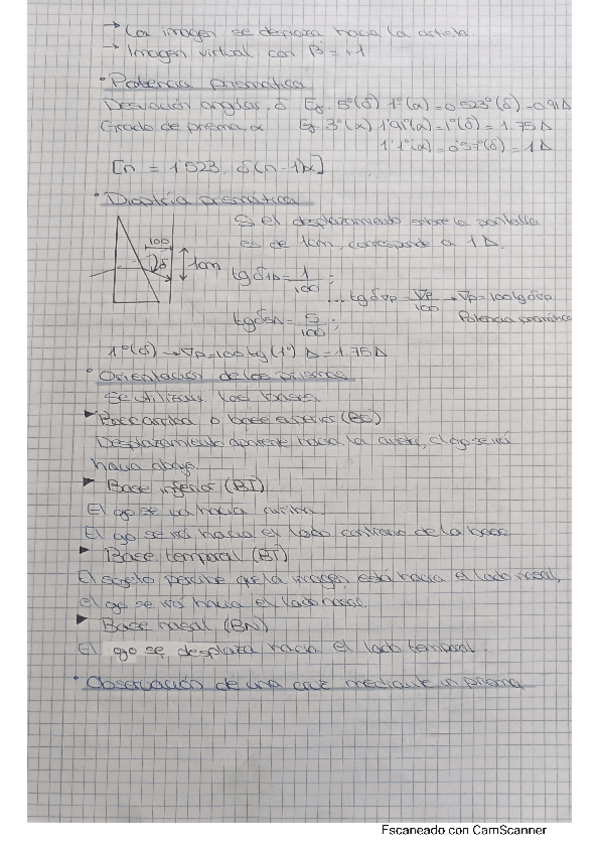 → La imagen se desplaza hacia la arista.
→ Imagen virtual con β = +1
• Potencia prismática
Desviación angular, δ Ej. 5º(δ) 1º(α) = 0.523º(δ) = 0.91Δ
Grado de prisma, α Ej. 3º(α) 1'91º(α) = 1º(δ) = 1.75Δ
1'1º(α) = 0'57º(δ) = 1Δ
[n = 1'523. δ(n-1)α]
• Displxia prismática
Si el desplazamiento sobre la pantalla
es de 1cm, corresponde a 1Δ.
100
δ 1cm
tgδ1Δ = 1/100 ;
... tgδ∇p = ∇p/100 → ∇p = 100tgδ∇p
tgδ5Δ = 5/100 ;
Potencia prismática
1º(δ) → ∇p = 100tg(1º) Δ = 1.75Δ
• Orientación de los prismas
Se utilizan las bases.
▶ Base arriba o base superior (BS)
Desplazamiento aparente hacia la arista, el ojo se irá
hacia abajo.
▶ Base inferior (BI)
El ojo se va hacia arriba.
El ojo se irá hacia el lado contrario de la base
▶ Base temporal (BT)
El sujeto percibe que la imagen está hacia el lado nasal,
el ojo se irá hacia el lado nasal.
▶ Base nasal (BN)
El ojo se desplaza hacia el lado temporal.
• Observación de una cruz mediante un prisma
Escaneado con CamScanner